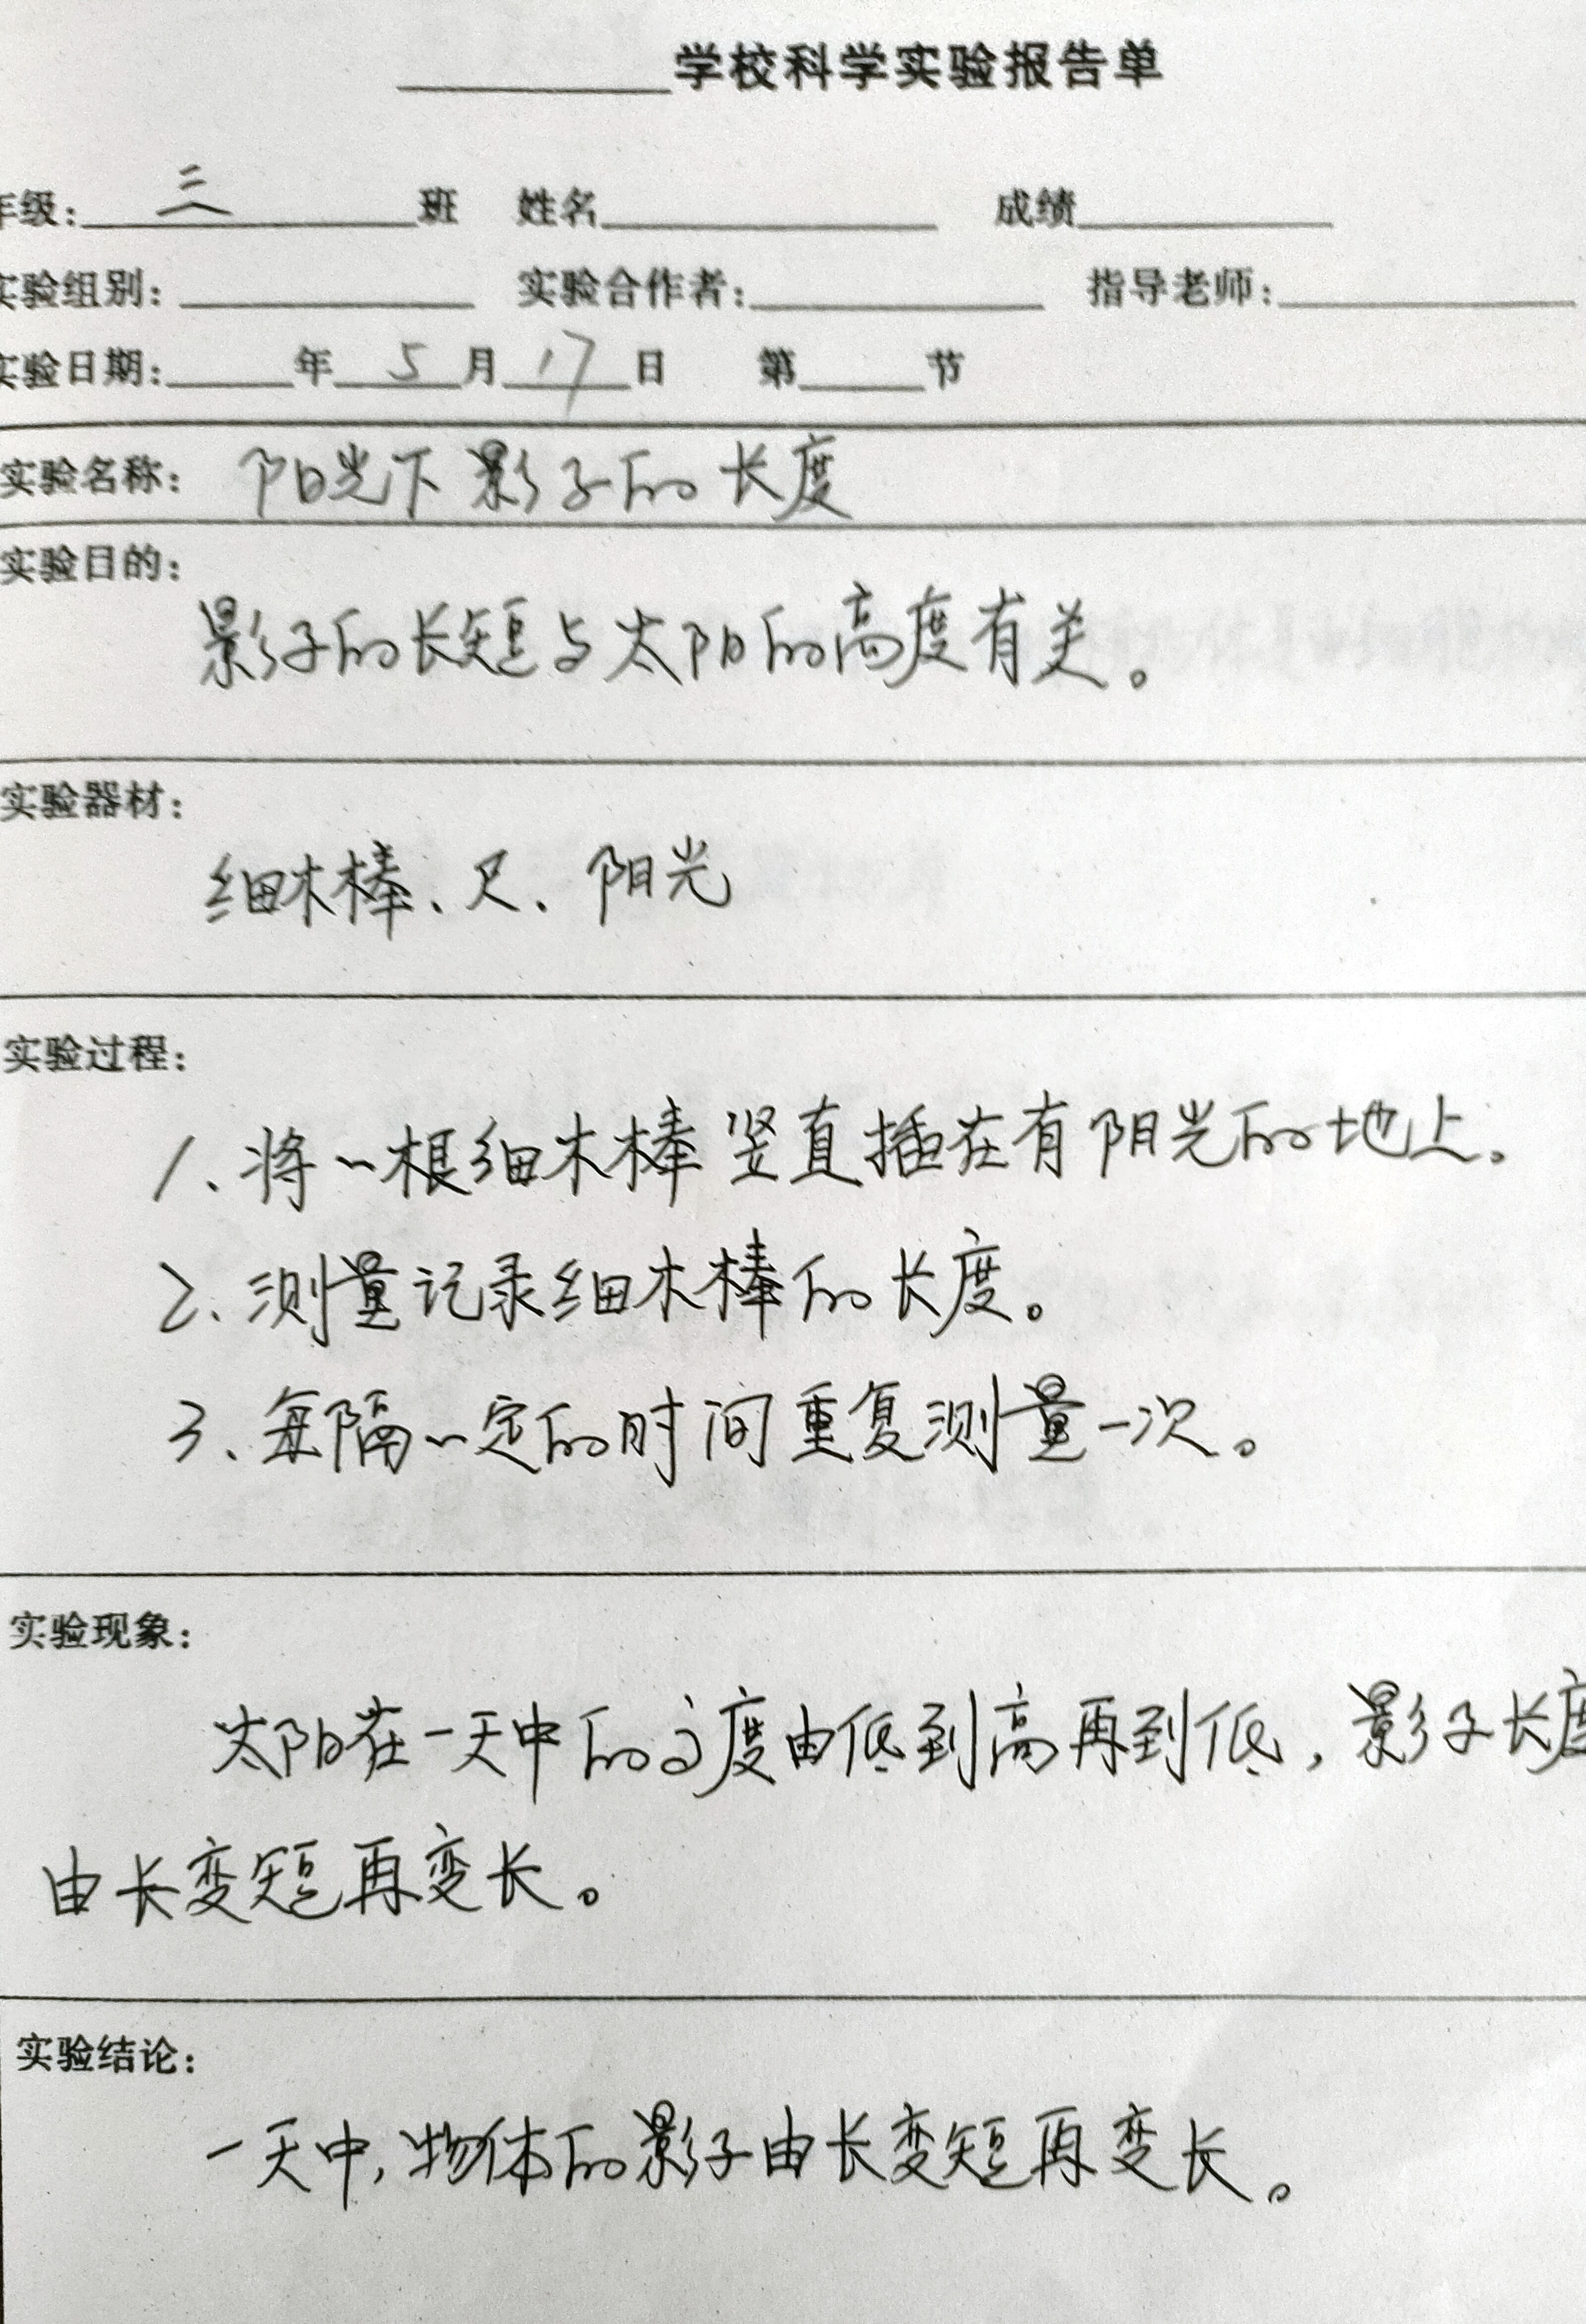 ______学校科学实验报告单
年级：三班 姓名______ 成绩______
实验组别：______ 实验合作者：______ 指导老师：______
实验日期：____年5月17日 第____节
实验名称：阳光下影子的长度
实验目的：
影子的长短与太阳的高度有关。
实验器材：
细木棒、尺、阳光
实验过程：
1、将一根细木棒竖直插在有阳光的地上。
2、测量记录细木棒的长度。
3、每隔一定的时间重复测量一次。
实验现象：
太阳在一天中的高度由低到高再到低，影子长度
由长变短再变长。
实验结论：
一天中，物体的影子由长变短再变长。